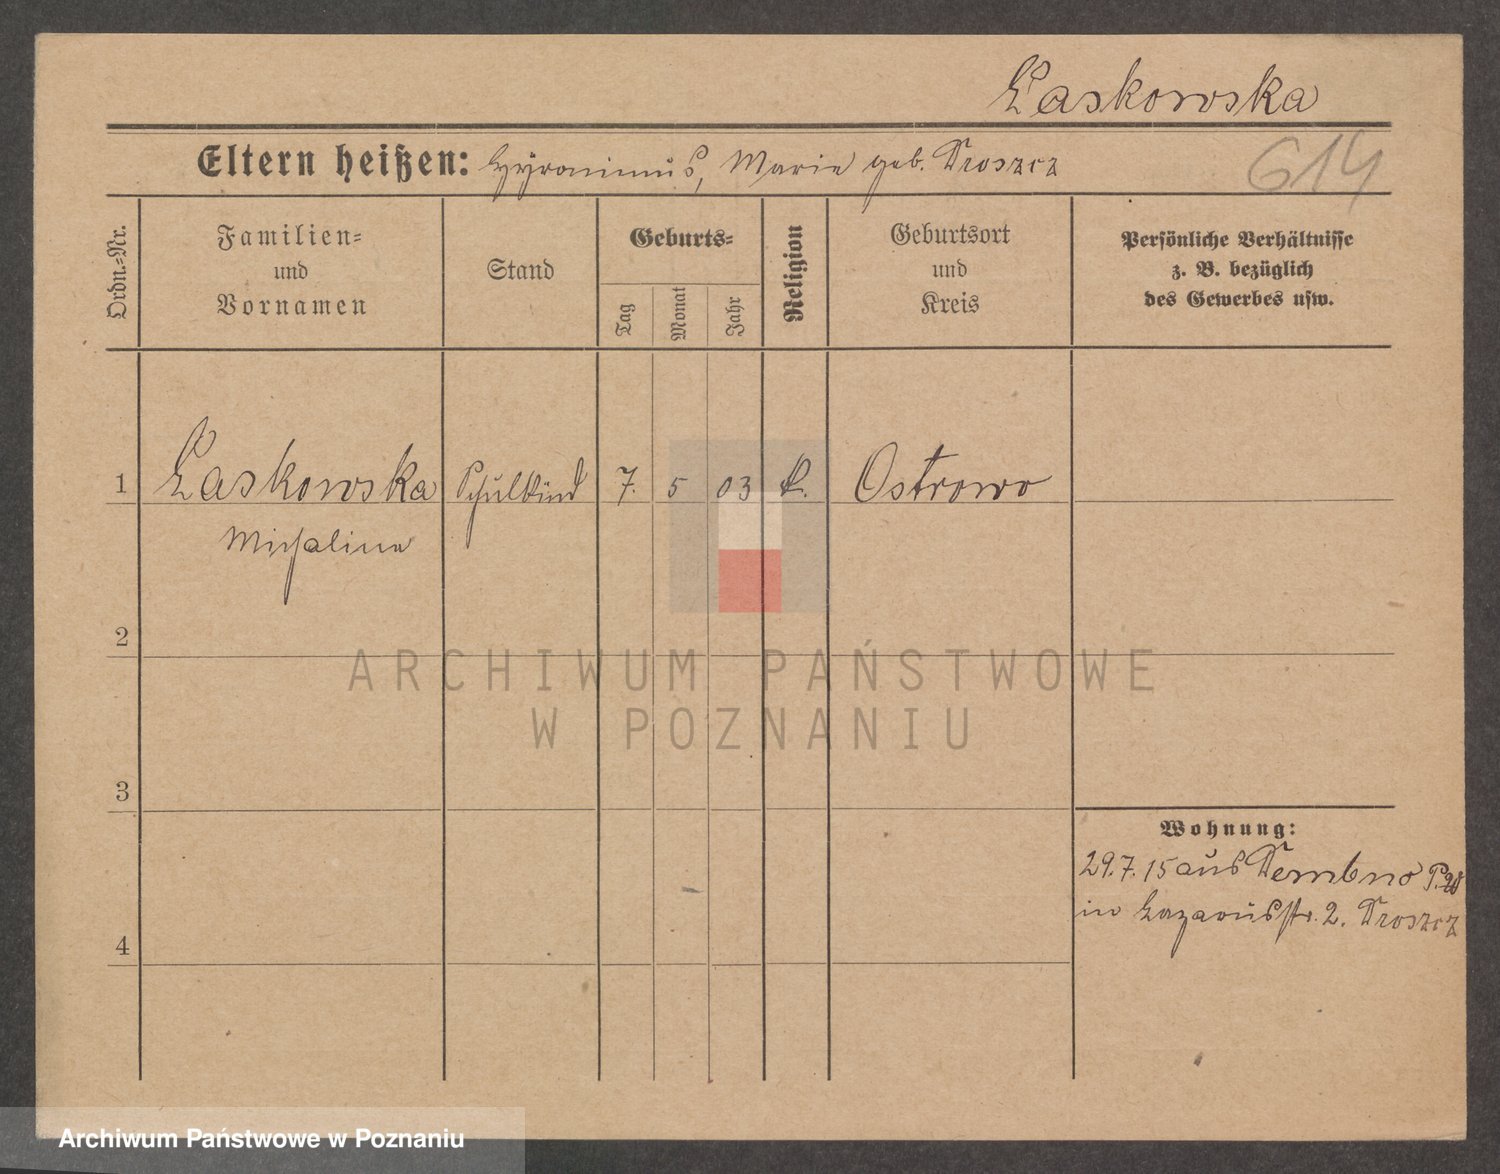 Laskowska
Eltern heißen: Hyronimus, Marie geb. Droszcz
614
Ordn.-Nr.
Familien-
und
Vornamen
Stand
Geburts-
Tag
Monat
Jahr
Religion
Geburtsort
und
Kreis
Persönliche Verhältnisse
z. B. bezüglich
des Gewerbes usw.
1 Laskowska Schulkind 7. 5 03 k. Ostrowo
Michalina
2
3
4
Wohnung:
29.7.15 aus Dembno
in Lazarusstr. 2. Droszcz
ARCHIWUM PAŃSTWOWE
W POZNANIU
Archiwum Państwowe w Poznaniu